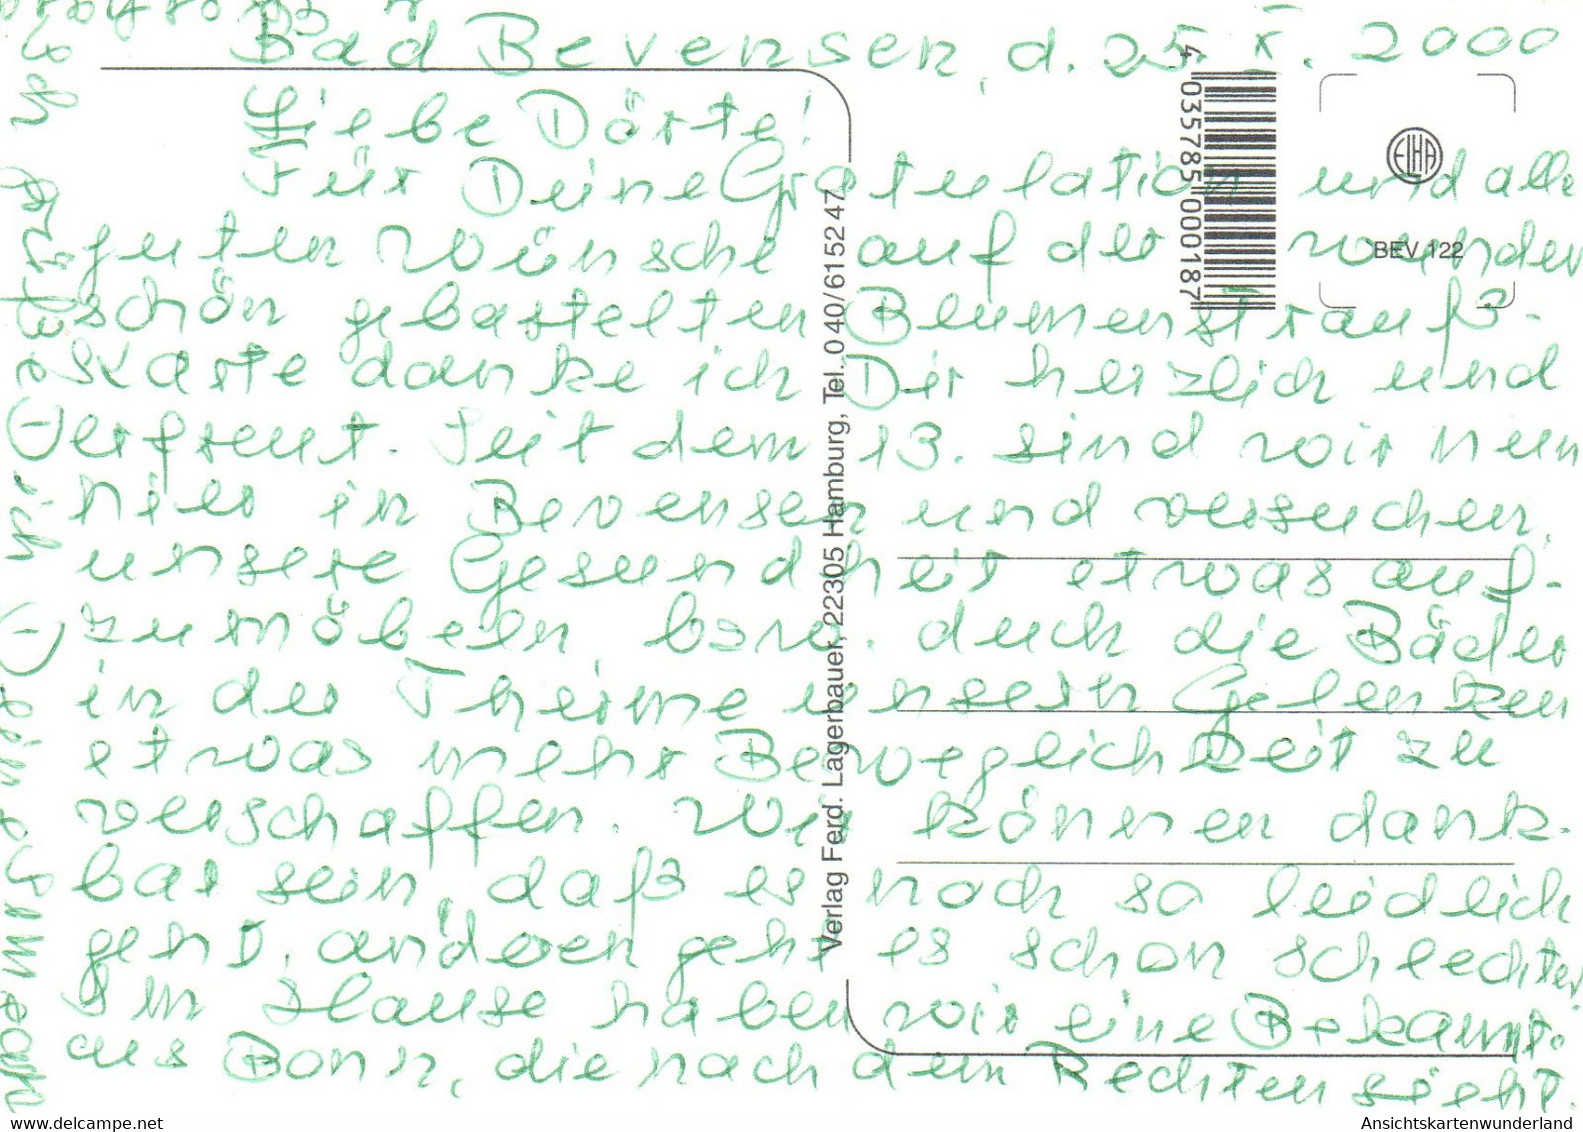 Bad Bevensen, d. 25. X. 2000
Liebe Dörte!
Für Deine Gratulation und alle
guten Wünsche auf der wunder
schön gebastelten Blumenstrauß-
karte danke ich Dir herzlich und
erfreut. Seit dem 13. sind wir nun
hier in Bevensen und versuchen,
unsere Gesundheit etwas auf-
zumöbeln, bzw. duch die Bäder
in der Therme unsern Gelenken
etwas mehr Beweglichkeit zu
verschaffen. Wir können dank-
bar sein, daß es noch so leidlich
geht, anderen geht es schon schlechter
Im Hause haben wir eine Bekannte
aus Bonn, die nach dem Rechten sieht.
4 035785 000187
ELHA
BEV 122
Verlag Ferd. Lagerbauer, 22305 Hamburg, Tel. 0 40/6 15 2 47
www.delcampe.net
Ansichtskartenwunderland